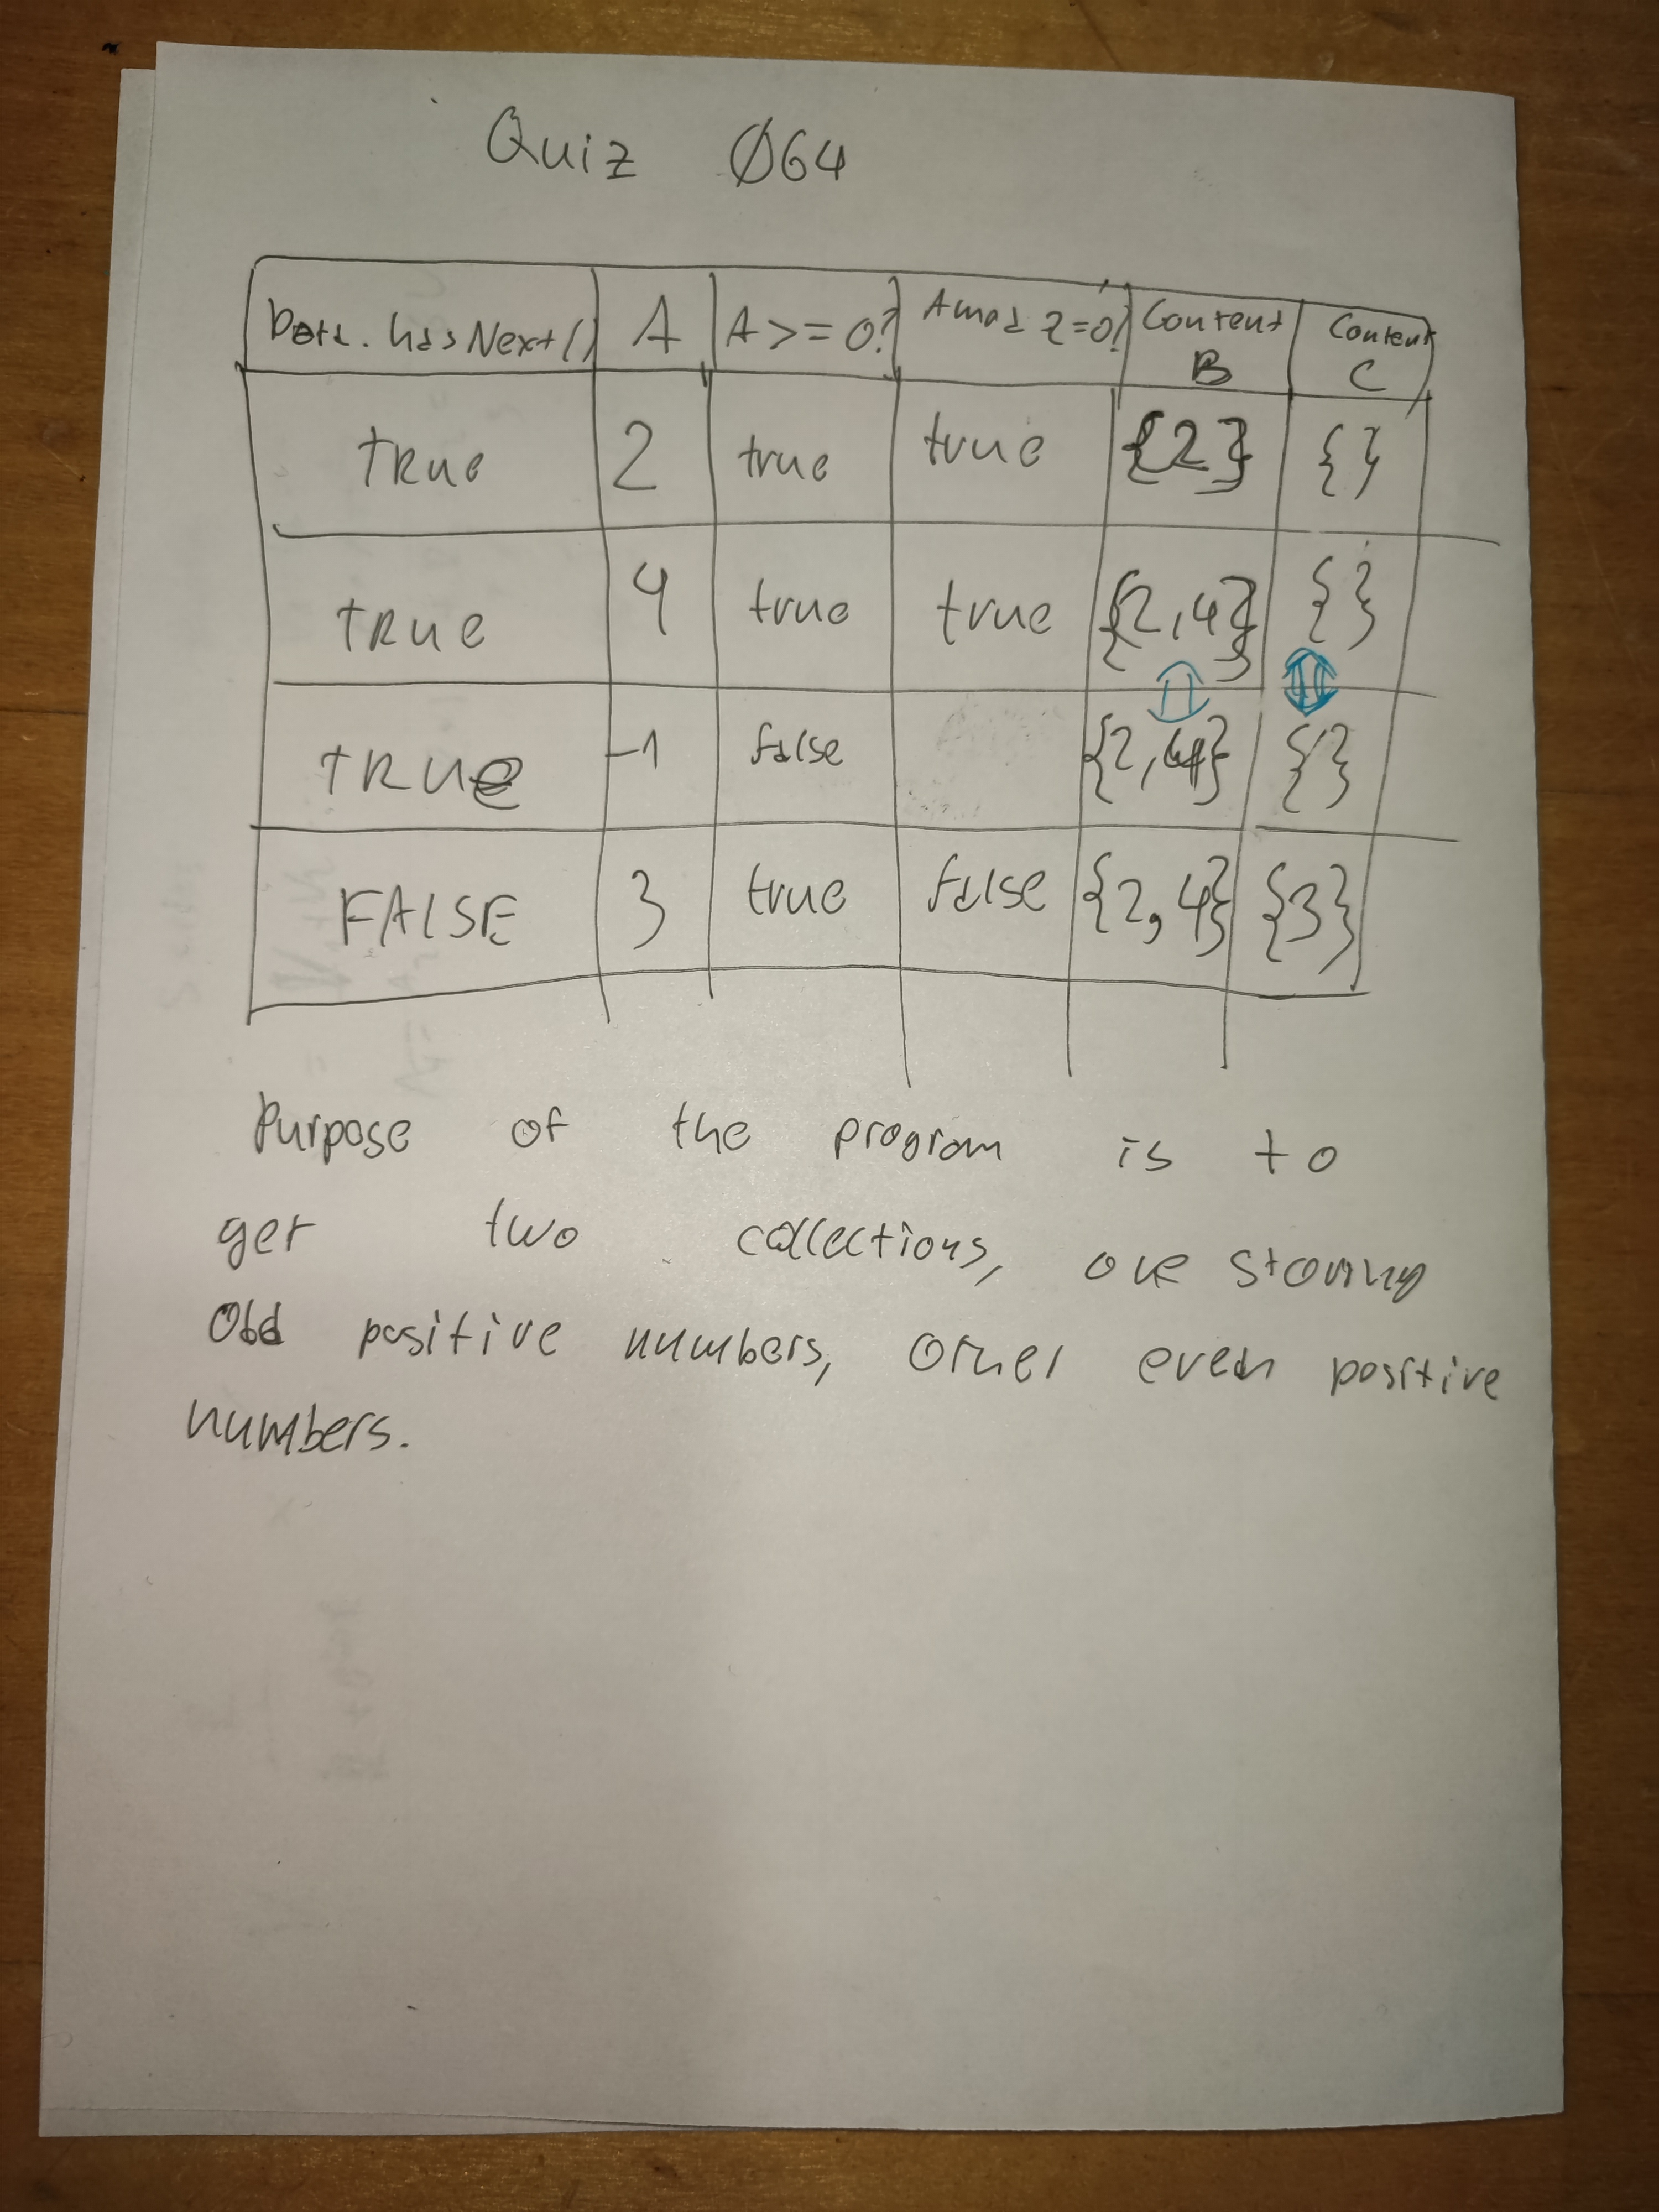 Quiz Ø64
Data.hasNext() A A>=0? A mod 2=0? Content B Content C
TRUe 2 true true {2} {}
TRUe 4 true true {2,4} {}
TRUe -1 false {2,4} {}
FALSE 3 true false {2,4} {3}
Purpose of the program is to
get two collections, one storing
Odd positive numbers, other even positive
numbers.